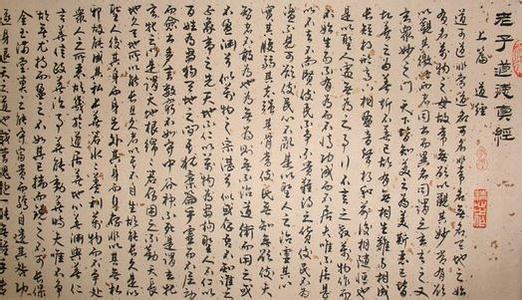 老子道德真經
上篇 道經
道可道非常道名可名非常名無名天地之始
有名萬物之母故常無欲以觀其妙常有欲
以觀其徼此兩者同出而異名同謂之玄玄之又
玄衆妙之門 天下皆知美之為美斯惡已皆
知善之為善斯不善已故有無相生難易相成
長短相形高下相傾音聲相和前後相隨
是以聖人處無為之事行不言之教萬物作而
不辭生而不有為而不恃功成不居夫唯不居是
以不去 不尚賢使民不爭不貴難得之貨使民不
為盜不見可欲使心不亂是以聖人之治虛其心
實其腹弱其志強其骨常使民無知無欲使夫
知者不敢為也為無為則無不治 道沖而用之或
不盈淵乎似萬物之宗湛兮似或存吾不知誰之
子象帝之先 天地不仁以萬物為芻狗聖人不仁以
百姓為芻狗天地之間其猶橐籥乎虛而不屈動
而愈出多言數窮不如守中 谷神不死是謂玄牝
玄牝之門是謂天地根綿綿若存用之不勤 天長地
久天地所以能長且久者以其不自生故能長生是以
聖人後其身而身先外其身而身存非以其無私
邪故能成其私 上善若水水善利萬物而不爭處
衆人之所惡故幾於道居善地心善淵與善仁
言善信政善治事善能動善時夫唯不爭
故無尤 持而盈之不如其已揣而銳之不可長保
金玉滿堂莫之能守富貴而驕自遺其咎功成
身退天之道 載營魄抱一能無離乎專氣